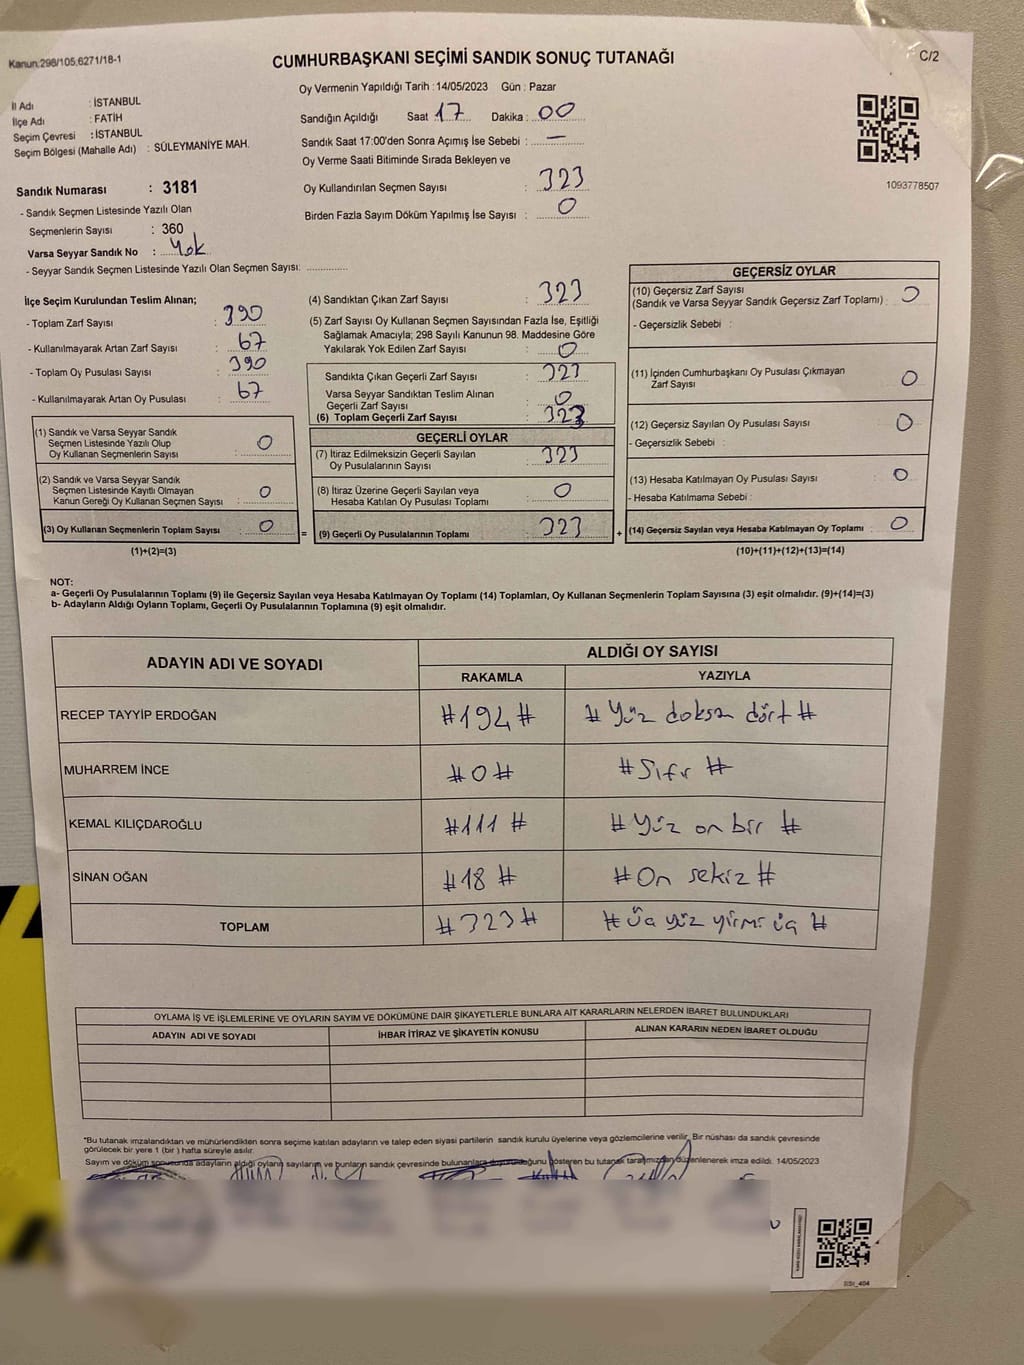 Kanun:298/105,6271/18-1
CUMHURBAŞKANI SEÇİMİ SANDIK SONUÇ TUTANAĞI
C/2
Oy Vermenin Yapıldığı Tarih : 14/05/2023 Gün : Pazar
İl Adı : İSTANBUL
İlçe Adı : FATİH
Seçim Çevresi : İSTANBUL
Seçim Bölgesi (Mahalle Adı) : SÜLEYMANİYE MAH.
Sandığın Açıldığı Saat 17 Dakika : 00
Sandık Saat 17:00'den Sonra Açımış İse Sebebi : —
Oy Verme Saati Bitiminde Sırada Bekleyen ve
Oy Kullandırılan Seçmen Sayısı : 323
Birden Fazla Sayım Döküm Yapılmış İse Sayısı : 0
1093778507
Sandık Numarası : 3181
- Sandık Seçmen Listesinde Yazılı Olan
Seçmenlerin Sayısı : 360
Varsa Seyyar Sandık No : Yok
- Seyyar Sandık Seçmen Listesinde Yazılı Olan Seçmen Sayısı: ..............
İlçe Seçim Kurulundan Teslim Alınan;
- Toplam Zarf Sayısı : 390
- Kullanılmayarak Artan Zarf Sayısı : 67
- Toplam Oy Pusulası Sayısı : 390
- Kullanılmayarak Artan Oy Pusulası : 67
(1) Sandık ve Varsa Seyyar Sandık
Seçmen Listesinde Yazılı Olup
Oy Kullanan Seçmenlerin Sayısı : 0
(2) Sandık ve Varsa Seyyar Sandık
Seçmen Listesinde Kayıtlı Olmayan
Kanun Gereği Oy Kullanan Seçmen Sayısı : 0
(3) Oy Kullanan Seçmenlerin Toplam Sayısı : 0
(1)+(2)=(3)
(4) Sandıktan Çıkan Zarf Sayısı : 323
(5) Zarf Sayısı Oy Kullanan Seçmen Sayısından Fazla İse, Eşitliği
Sağlamak Amacıyla; 298 Sayılı Kanunun 98. Maddesine Göre
Yakılarak Yok Edilen Zarf Sayısı : 0
Sandıkta Çıkan Geçerli Zarf Sayısı : 323
Varsa Seyyar Sandıktan Teslim Alınan
Geçerli Zarf Sayısı : 0
(6) Toplam Geçerli Zarf Sayısı : 323
GEÇERLİ OYLAR
(7) İtiraz Edilmeksizin Geçerli Sayılan
Oy Pusulalarının Sayısı : 323
(8) İtiraz Üzerine Geçerli Sayılan veya
Hesaba Katılan Oy Pusulası Toplamı : 0
= (9) Geçerli Oy Pusulalarının Toplamı : 323 +
GEÇERSİZ OYLAR
(10) Geçersiz Zarf Sayısı
(Sandık ve Varsa Seyyar Sandık Geçersiz Zarf Toplamı) : 0
- Geçersizlik Sebebi :
(11) İçinden Cumhurbaşkanı Oy Pusulası Çıkmayan
Zarf Sayısı : 0
(12) Geçersiz Sayılan Oy Pusulası Sayısı : 0
- Geçersizlik Sebebi :
(13) Hesaba Katılmayan Oy Pusulası Sayısı : 0
- Hesaba Katılmama Sebebi :
(14) Geçersiz Sayılan veya Hesaba Katılmayan Oy Toplamı : 0
(10)+(11)+(12)+(13)=(14)
NOT:
a- Geçerli Oy Pusulalarının Toplamı (9) ile Geçersiz Sayılan veya Hesaba Katılmayan Oy Toplamı (14) Toplamları, Oy Kullanan Seçmenlerin Toplam Sayısına (3) eşit olmalıdır. (9)+(14)=(3)
b- Adayların Aldığı Oyların Toplamı, Geçerli Oy Pusulalarının Toplamına (9) eşit olmalıdır.
ADAYIN ADI VE SOYADI
ALDIĞI OY SAYISI
RAKAMLA YAZIYLA
RECEP TAYYİP ERDOĞAN #194# # Yüz doksan dört #
MUHARREM İNCE #0# # Sıfır #
KEMAL KILIÇDAROĞLU #111# # Yüz on bir #
SİNAN OĞAN #18# # On sekiz #
TOPLAM #323# # Üç yüz yirmi üç #
OYLAMA İŞ VE İŞLEMLERİNE VE OYLARIN SAYIM VE DÖKÜMÜNE DAİR ŞİKAYETLERLE BUNLARA AİT KARARLARIN NELERDEN İBARET BULUNDUKLARI
ADAYIN ADI VE SOYADI İHBAR İTİRAZ VE ŞİKAYETİN KONUSU ALINAN KARARIN NEDEN İBARET OLDUĞU
*Bu tutanak imzalandıktan ve mühürlendikten sonra seçime katılan adayların ve talep eden siyasi partilerin sandık kurulu üyelerine veya gözlemcilerine verilir. Bir nüshası da sandık çevresinde
görülecek bir yere 1 (bir ) hafta süreyle asılır.
Sayım ve döküm sonucunda adayların aldığı oyların sayılarını ve bunların sandık çevresinde bulunanlara duyurulduğunu gösteren bu tutanak tarafımızdan düzenlenerek imza edildi. 14/05/2023